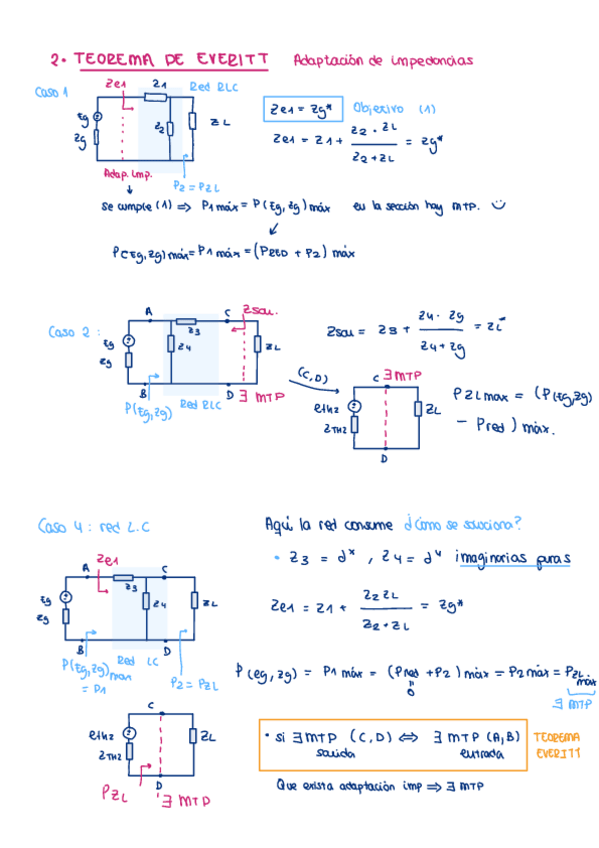 2. TEOREMA DE EVERITT Adaptación de impedancias
Caso 1
Ze1 Z1 Red RLC
Eg
Zg
Z2
ZL
Adap. Imp.
P2 = PZL
Ze1 = Zg* Objetivo (1)
Ze1 = Z1 + Z2 · ZL / Z2 + ZL = Zg*
Se cumple (1) ⇒ P1 máx = P(Eg, Zg) máx en la sección hay MTP.
P(Eg, Zg) máx = P1 máx = (PRED + P2) máx
Caso 2 :
A C Zsau.
Eg
Zg
Z3
Z4
ZL
B D ∃ MTP
P(Eg, Zg) Red RLC
Zsau = Z3 + Z4 · Zg / Z4 + Zg = ZL*
(C,D)
C ∃ MTP
eth2
ZTH2
ZL
D
PZL max = (P(Eg, Zg)
- Pred) máx.
Caso 4 : red L.C
Aquí la red consume ¿Cómo se soluciona?
• Z3 = dx , Z4 = d4 imaginarias puras
Ze1
A C
Eg
Zg
Z3
Z4
ZL
B D
Red LC
P(Eg, Zg) max
= P1
P2 = PZL
Ze1 = Z1 + Z2 ZL / Z2 + ZL = Zg*
P(eg, zg) = P1 máx = (Pred + P2) máx = P2 máx = PZL máx
0
∃ MTP
C
eth2
ZTH2
ZL
D
PZL ∃ MTP
• Si ∃ MTP (C, D) ⇔ ∃ MTP (A, B)
salida entrada
TEOREMA
EVERITT
Que exista adaptación imp ⇒ ∃ MTP